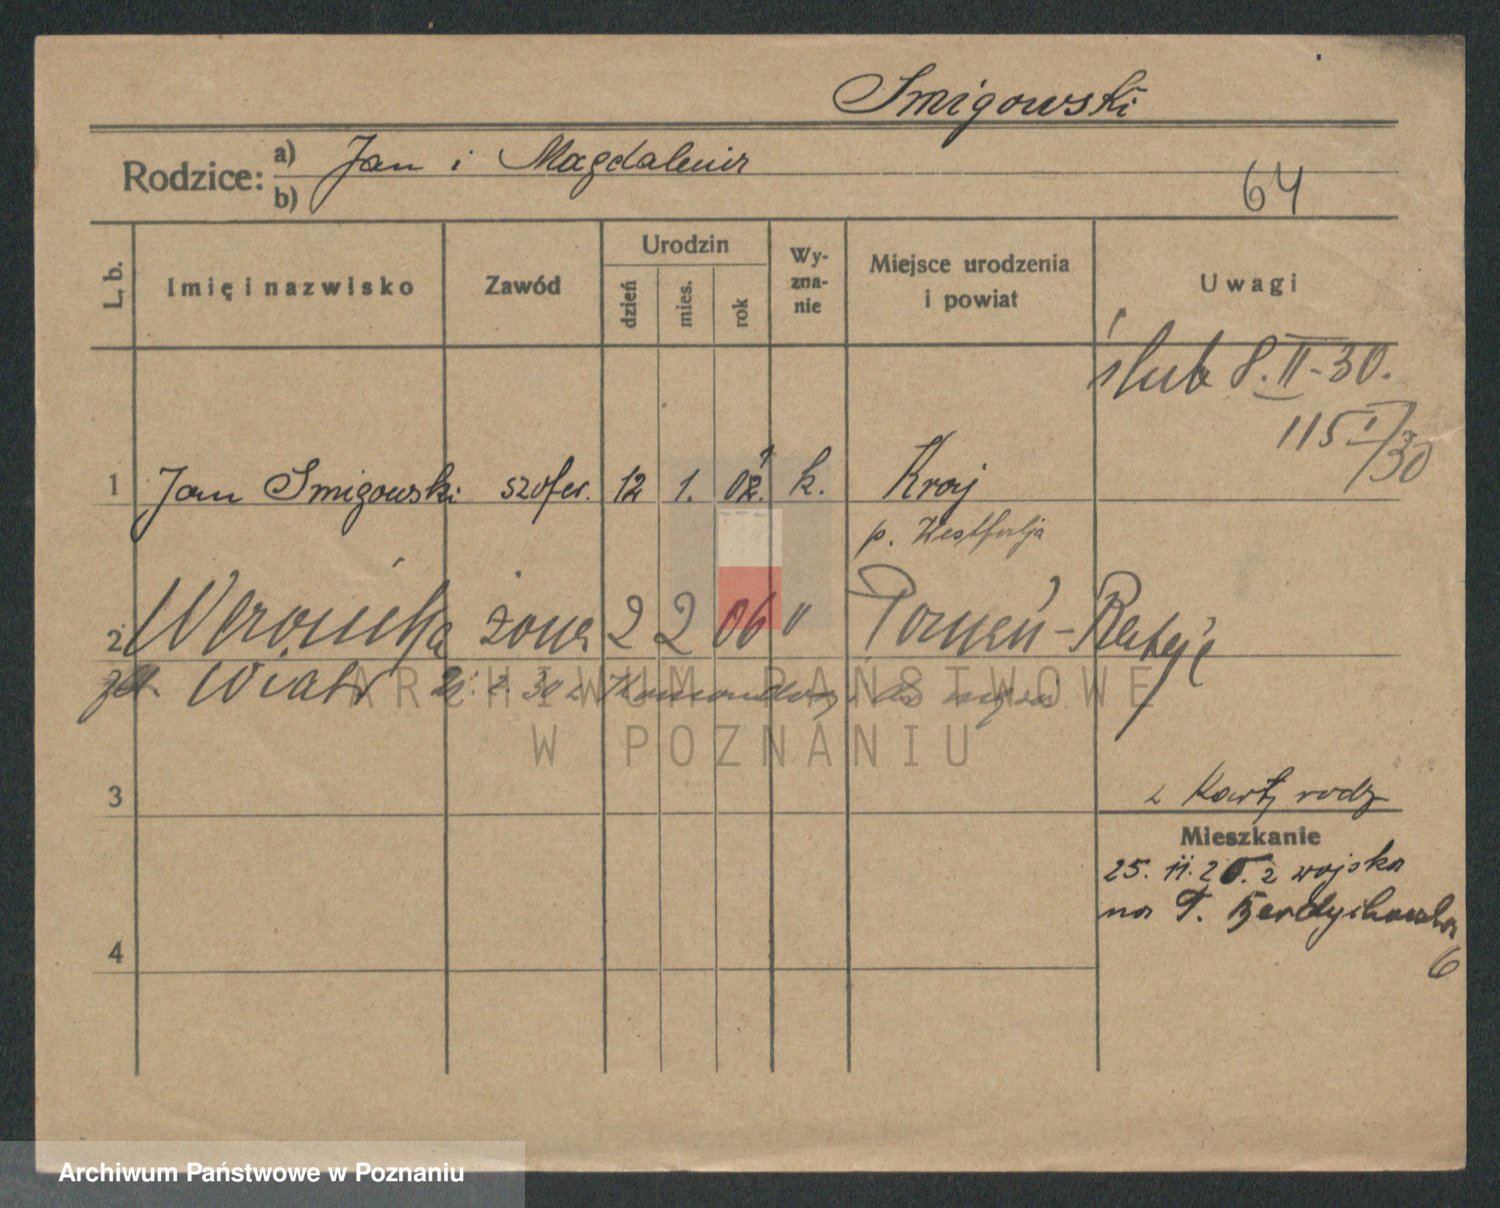 Smigowski
Rodzice: a) Jan i Magdalena
b)
64
L. b.
Imię i nazwisko
Zawód
Urodzin
dzień
mies.
rok
Wy-
zna-
nie
Miejsce urodzenia
i powiat
Uwagi
ślub 8.II-30.
115 I/30
1 Jan Smigowski szofer. 12 1. 02. k. Kraj
p. Westfalja
2 Weronika żona 2 2 06 " Poznań-Rataje
zd. Wiatr 2. 30 z do męża
3
z Karty rodz
Mieszkanie
25. 11. z wojska
na T. Berdychowska
6
4
ARCHIWUM PAŃSTWOWE
W POZNANIU
Archiwum Państwowe w Poznaniu